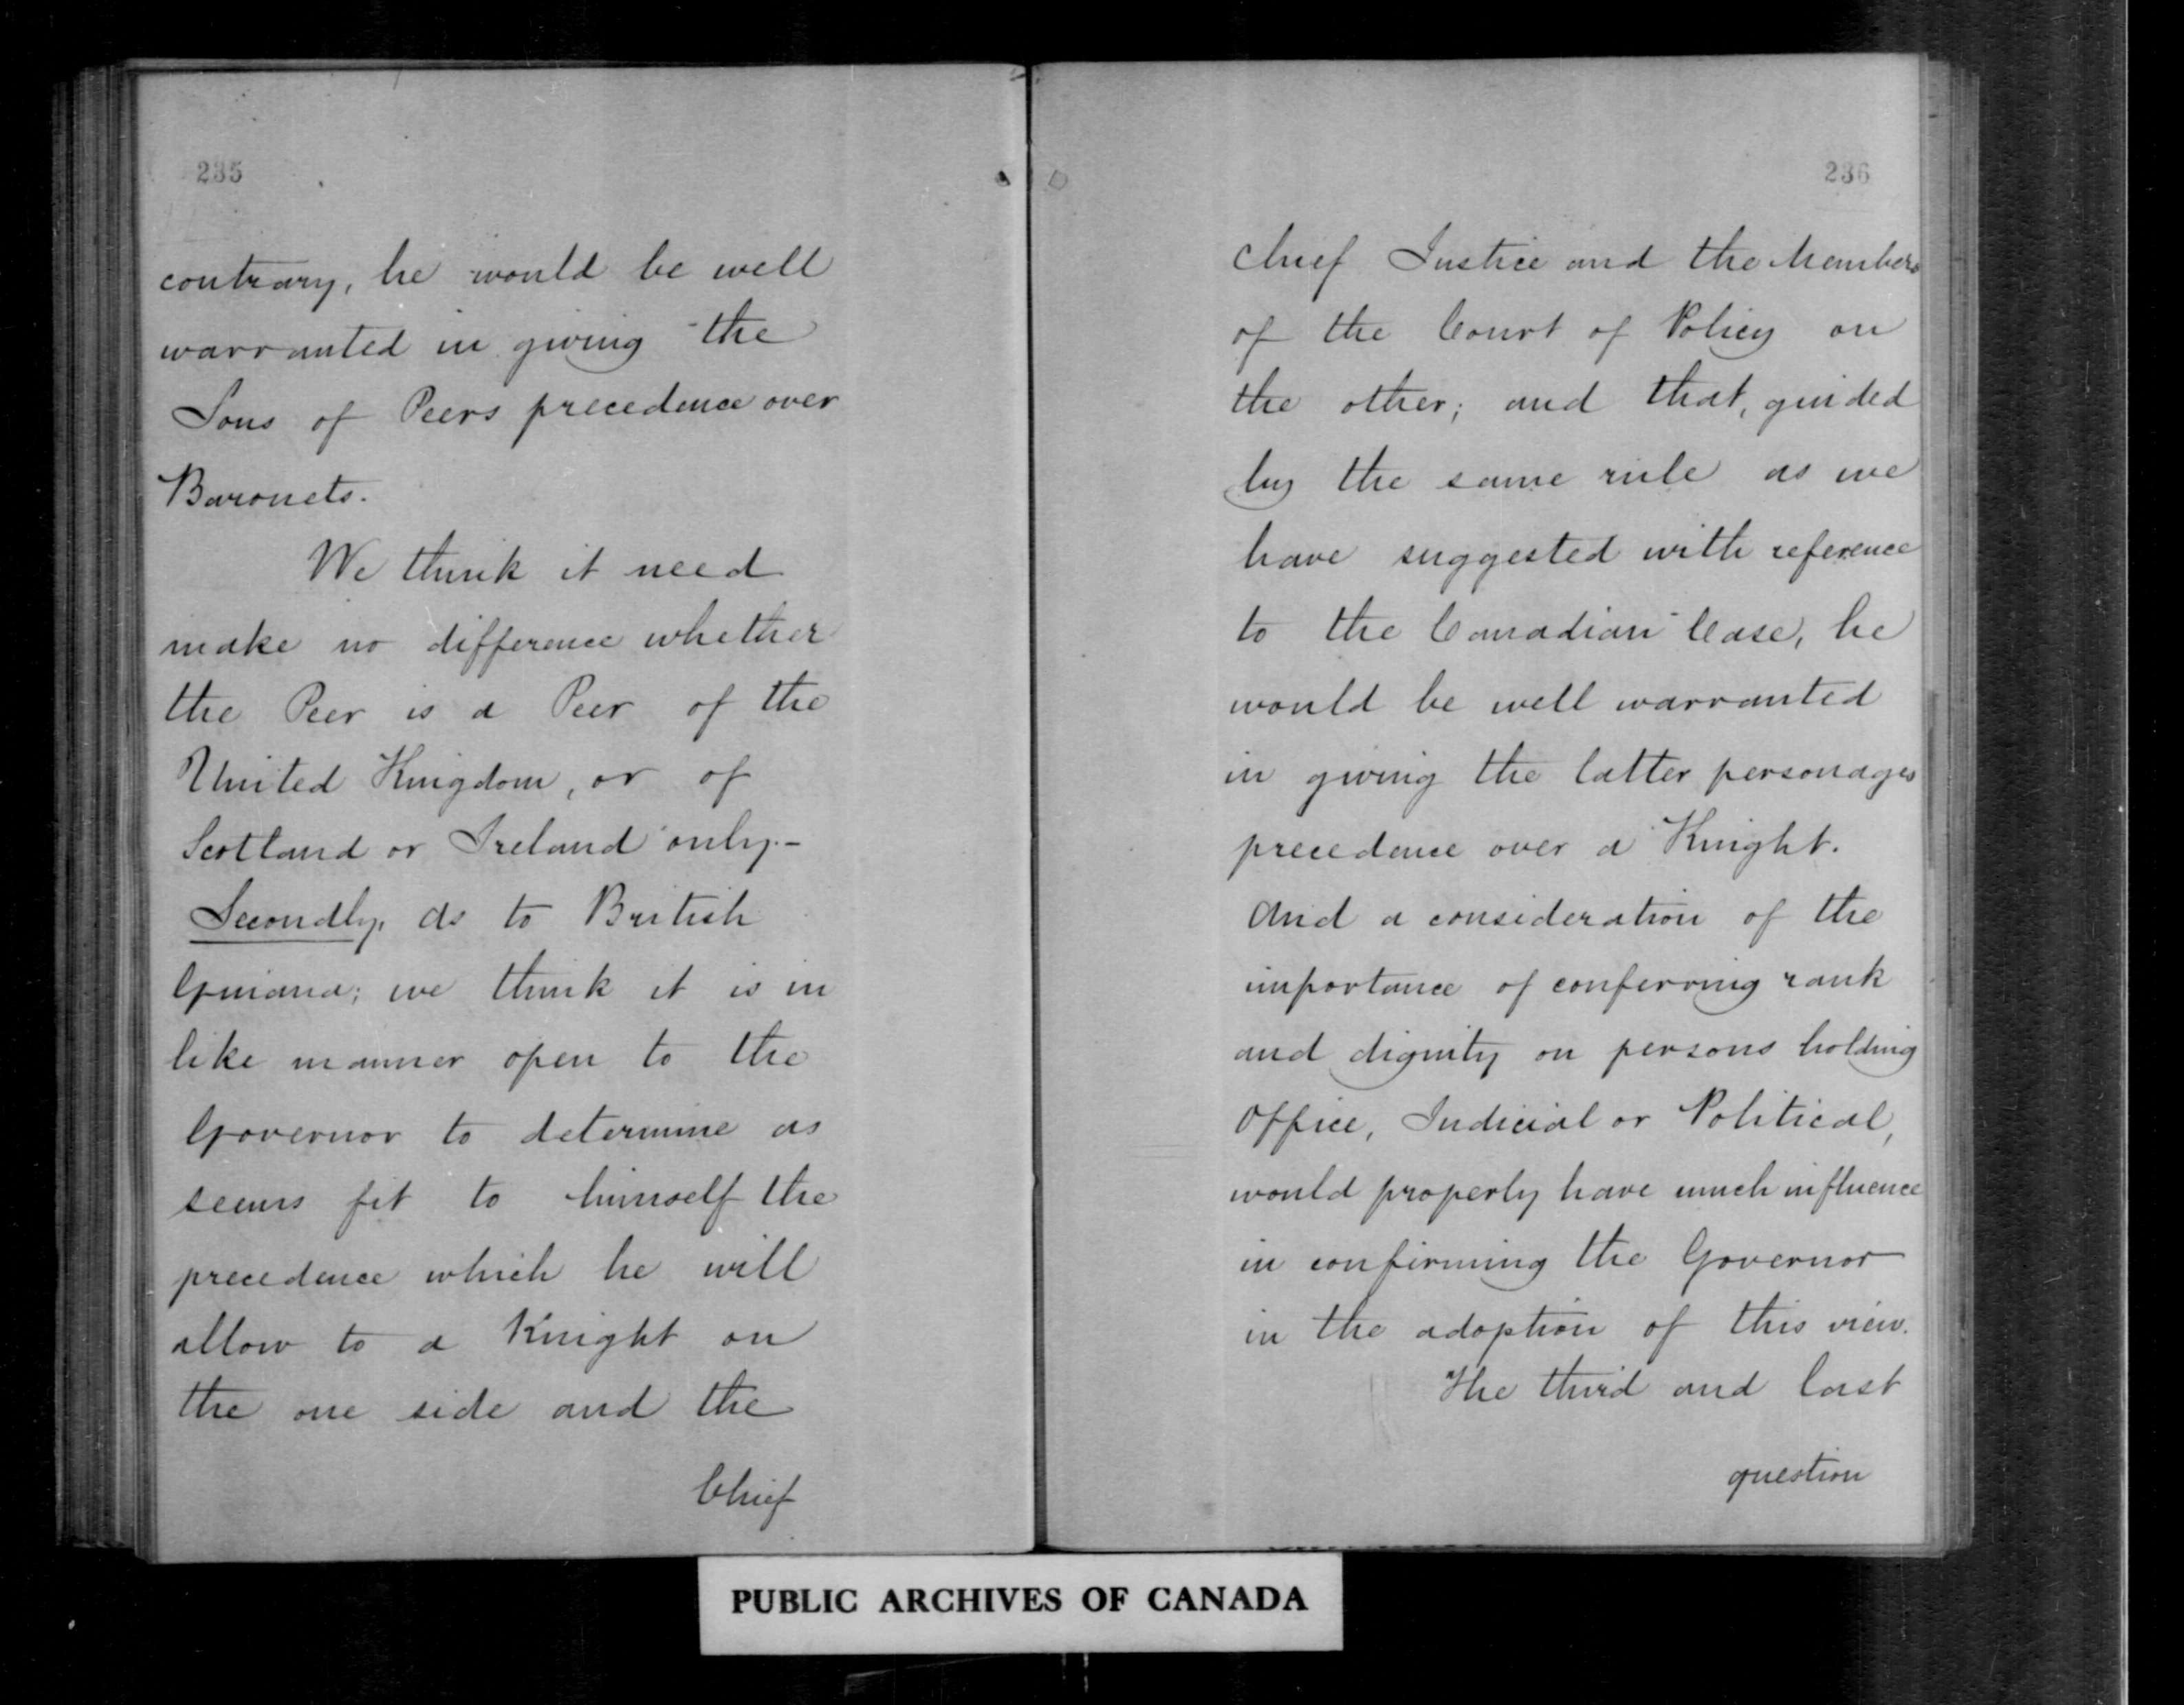 235
contrary, he would be well
warranted in giving the
Sons of Peers precedence over
Baronets.
We think it need
make no difference whether
the Peer is a Peer of the
United Kingdom, or of
Scotland or Ireland only.-
Secondly, as to British
Guiana; we think it is in
like manner open to the
Governor to determine as
seems fit to himself the
precedence which he will
allow to a Knight on
the one side and the
Chief
236
Chief Justice and the Members
of the Court of Policy on
the other; and that, guided
by the same rule as we
have suggested with reference
to the Canadian Case, he
would be well warranted
in giving the latter personages
precedence over a Knight.
And a consideration of the
importance of conferring rank
and dignity on persons holding
Office, Judicial or Political,
would properly have much influence
in confirming the Governor
in the adoption of this view.
The third and last
question
PUBLIC ARCHIVES OF CANADA